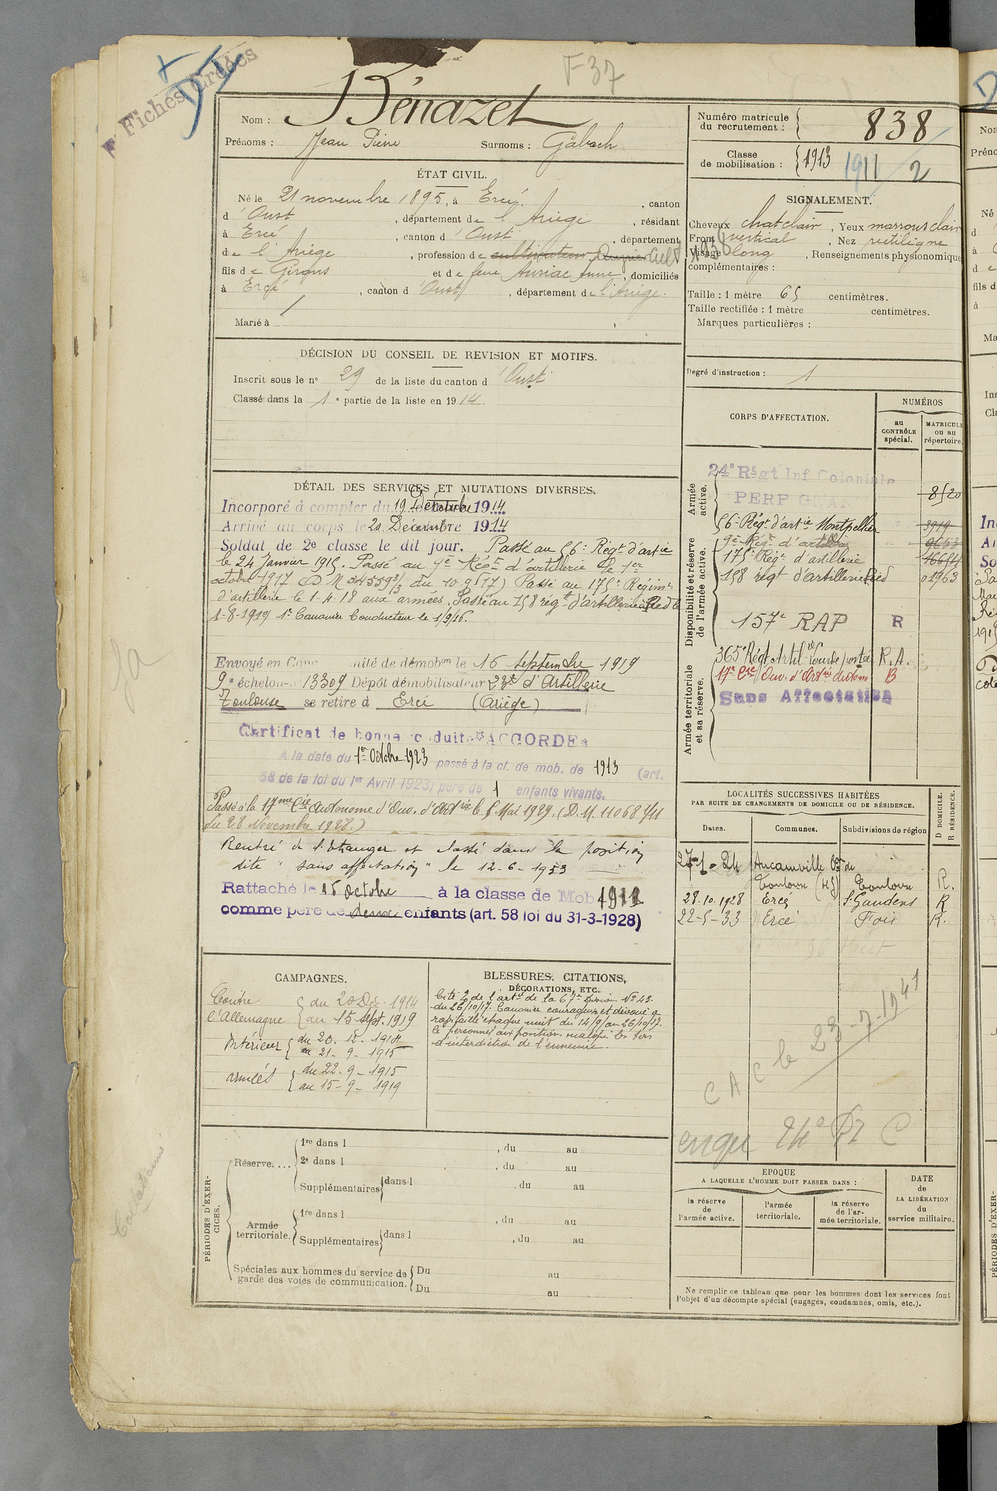 Fiches Créées
F 37
Nom : Bénazet
Prénoms : Jean Pierre Surnoms : Gabach
Numéro matricule du recrutement : 838
Classe de mobilisation : 1913 1911 / 2
ÉTAT CIVIL.
Né le 21 novembre 1895, à Ercé, canton
d'Oust, département de l'Ariège, résidant
à Ercé, canton d'Oust, département
de l'Ariège, profession de cultivateur Cult
fils de Girons et de feue Auriac Anne, domiciliés
à Ercé, canton d'Oust, département de l'Ariège.
Marié à
SIGNALEMENT.
Cheveux chat clair, Yeux marrons clair
Front vertical, Nez rectiligne
Visage long, Renseignements physionomiques
complémentaires :
Taille : 1 mètre 65 centimètres.
Taille rectifiée : 1 mètre centimètres.
Marques particulières :
Degré d'instruction : 1
DÉCISION DU CONSEIL DE REVISION ET MOTIFS.
Inscrit sous le n° 29 de la liste du canton d'Oust
Classé dans la 1e partie de la liste en 1914.
DÉTAIL DES SERVICES ET MUTATIONS DIVERSES.
Incorporé à compter du 19 Décembre 1914
Arrivé au corps le 20 Décembre 1914
Soldat de 2e classe le dit jour. Passé au 56e Régt d'artie
le 24 Janvier 1915. Passé au 9e Régt d'artillerie le 1er
octobre 1917 (D M du 10.9.17) Passé au 175e Régiment
d'artillerie le 1.4.18 aux armées. Passé au 158 régt d'artillerie à Pied le
1-8-1919 1er Canonnier Conducteur le 1.9.16.
Envoyé en Congé illimité de démobon le 16 septembre 1919
9e échelon n° 13309 Dépôt démobilisateur 23e d'Artillerie
Toulouse se retire à Ercé (Ariège)
Certificat de bonne conduite "ACCORDÉ"
A la date du 1er Octobre 1923 passé à la cl. de mob. de 1913 (art.
58 de la loi du 1er Avril 1923) père de 1 enfants vivants.
Passé à la 17me Cie Autonome d'Ouv. d'Artrie le 1 Mai 1929. (D.M. 11068 3/11
du 28 Novembre 1928.)
Rentré de l'étranger et classé dans la position
dite "sans affectation" le 12-6-1933
Rattaché le 15 octobre à la classe de Mob 1911
comme père de deux enfants (art. 58 loi du 31-3-1928)
CORPS D'AFFECTATION.
NUMÉROS
au CONTRÔLE spécial.
MATRICULE ou au répertoire.
Armée active.
24e Régt Inf Coloniale
PERPIGNAN
8520
56e Régt d'artie Montpellier 3919
Disponibilité et réserve de l'armée active.
9e Régt d'artillerie 9653
175e Régt d'artillerie
158 régt d'artillerie à Pied 01963
157e RAP R
Armée territoriale et sa réserve.
365e Régt Artil Lourde portée R.A.
17e Cie Ouv. d'Artrie autonom B
Sans Affectation
LOCALITÉS SUCCESSIVES HABITÉES
PAR SUITE DE CHANGEMENTS DE DOMICILE OU DE RÉSIDENCE.
Dates. Communes. Subdivisions de région D DOMICILE. R RÉSIDENCE.
Aucamville
Toulouse (HG) Toulouse R.
28.10.1928 Ercé St Gaudens R
22-5-33 Ercé Foix R.
CAC le 23-7-1941
CAMPAGNES.
Contre l'Allemagne du 20 Déc. 1914
au 15 Sept. 1919
Intérieur du 20. 12. 1914
au 21-9-1915
armées du 22-9-1915
au 15-9-1919
BLESSURES. CITATIONS, DÉCORATIONS, ETC.
Cité à l'O de l'artie de la 67e Division N° 43.
du 26/10/17. Canonnier courageux et dévoué a
ravitaillé chaque nuit du 14/9 au 26/10/17.
le personnel aux positions malgré les tirs
d'interdiction de l'ennemi.
PÉRIODES D'EXERCICES.
Réserve....
1re dans l , du au
2e dans l , du au
Supplémentaires dans l , du au
Armée territoriale.
1re dans l , du au
Supplémentaires dans l , du au
Spéciales aux hommes du service de garde des voies de communication.
Du au
Du au
EPOQUE
A LAQUELLE L'HOMME DOIT PASSER DANS :
la réserve de l'armée active.
l'armée territoriale.
la réserve de l'armée territoriale.
DATE de LA LIBÉRATION du service militaire.
Ne remplir ce tableau que pour les hommes dont les services font
l'objet d'un décompte spécial (engagés, condamnés, omis, etc.).